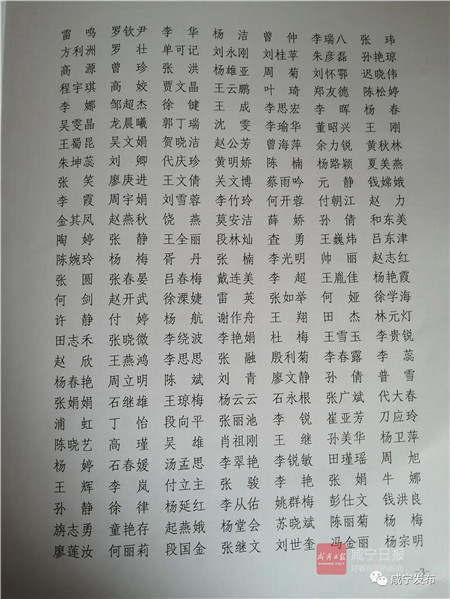 雷　鸣　罗钦尹　李　华　杨　洁　曾　仲　李瑞八　张　玮
方利洲　罗　壮　单可记　刘永刚　刘桂苹　朱彦磊　孙艳琼
高　源　曾　珍　张　洪　杨雄亚　周　菊　刘怀鄂　迟晓伟
程宇琪　高　姣　贾文晶　王云鹏　叶　琦　郑友德　陈松婷
李　娜　邹超杰　徐　键　王　成　李思宏　李　晖　杨　春
吴雯晶　龙晨曦　郭丁瑞　沈　雯　李瑜华　董昭兴　王　刚
王蜀昆　吴文娟　贺晓洁　赵公芳　曾海萍　余力锐　黄秋林
朱坤蕊　刘　卿　代庆珍　黄明娇　陈　楠　杨路颖　夏美燕
张　笑　廖庚进　王文倩　关文博　蔡雨吟　元　静　钱嫦娥
李　霞　周宇娟　刘雪蓉　李竹玲　何开蓉　付朝江　赵　力
金其凤　赵燕秋　饶　燕　莫安洁　薛　娇　孙　倩　和东美
陶　婷　张　静　王全丽　段林灿　查　勇　王巍炜　吕东津
陈婉玲　杨　梅　胥　丹　张　楠　李光明　帅　丽　赵志红
张　圆　张春晏　吕春梅　戴连美　李　超　王胤佳　杨艳霞
何　剑　赵开武　徐溧婕　雷　英　张如举　何　娅　徐学海
许　静　付　婷　杨　航　谢作舟　王　翔　田　杰　林元灯
田志禾　张晓微　李绕波　李艳娟　杜　梅　王雪玉　李贵锐
赵　欣　王燕鸿　李思思　张　融　殷利菊　李春露　李　蕊
杨春艳　周立明　陈　斌　刘　青　廖文静　孙　倩　普　雪
张娟娟　石继雄　王琼梅　杨云云　石永根　张广斌　代大春
浦　虹　丁　怡　段向平　张丽池　李　锐　崔亚芳　刀应玲
陈晓艺　高　瑾　吴　雄　肖祖刚　王　继　孙美华　杨卫萍
杨　婷　石春媛　汤孟思　李翠艳　李锐敏　田瑾瑶　周　旭
王　辉　李　岚　付立主　张　骏　李　艳　张　娟　牛　娜
孙　静　徐　律　杨延红　李从佑　姚群梅　彭仕文　钱洪良
旃志勇　童艳存　起燕娥　杨堂会　苏晓斌　陈丽菊　杨　梅
廖莲汝　何丽莉　段国金　张继文　刘世奎　冯金丽　杨宗明
咸宁日报
3
咸宁发布